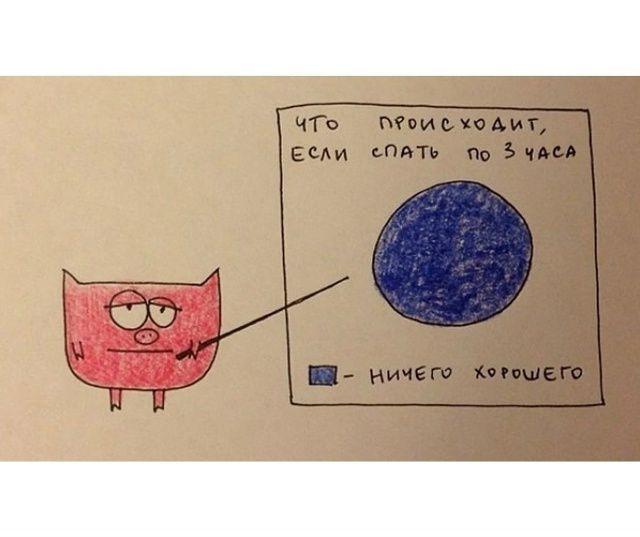 ЧТО ПРОИСХОДИТ,
ЕСЛИ СПАТЬ ПО 3 ЧАСА
- НИЧЕГО ХОРОШЕГО